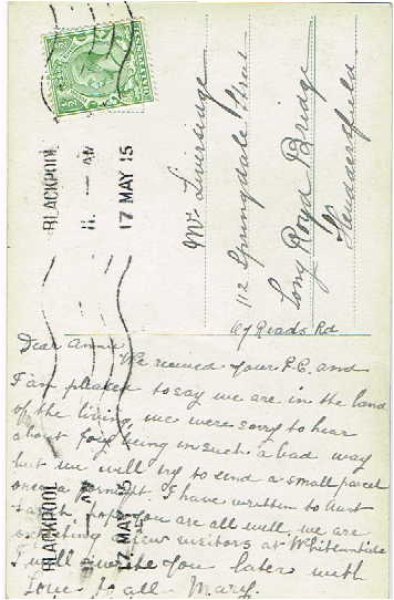 BLACKPOOL
11. — AM
17 MAY 15
Mrs Liversidge
112 Springdale Street
Long Royd Bridge
Huddersfield
67 Reads Rd
Dear Annie
We received your P.C. and
I am pleased to say we are in the land
of the living, we were sorry to hear
about being in such a bad way
but we will try to send a small parcel
I have written to Aunt
hope you are all well, we are
expecting few visitors at Whitsuntide
I will write you later with
Love to all Mary.
BLACKPOOL
— AM
17 MAY 15